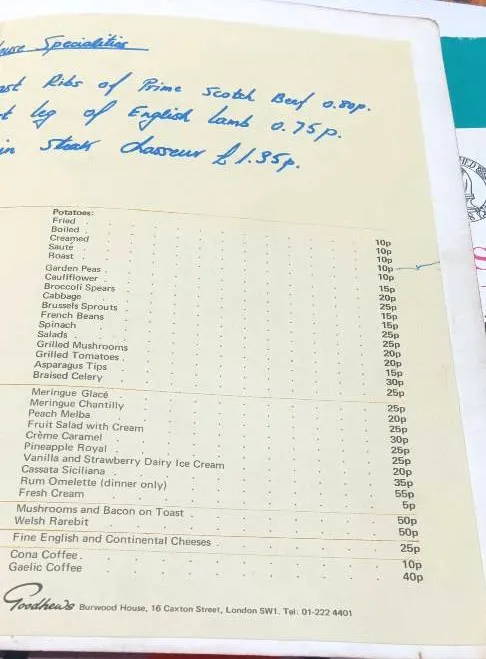 Specialities
Ribs of Prime Scotch Beef 0.80p.
leg of English lamb 0.75p.
Steak Chasseur £1.35p.
Potatoes:
Fried 10p
Boiled 10p
Creamed 10p
Sauté 10p
Roast 10p
Garden Peas 15p
Cauliflower 20p
Broccoli Spears 25p
Cabbage 15p
Brussels Sprouts 15p
French Beans 25p
Spinach 25p
Salads 20p
Grilled Mushrooms 20p
Grilled Tomatoes 15p
Asparagus Tips 30p
Braised Celery 25p
Meringue Glacé 25p
Meringue Chantilly 20p
Peach Melba 25p
Fruit Salad with Cream 30p
Crème Caramel 25p
Pineapple Royal 25p
Vanilla and Strawberry Dairy Ice Cream 20p
Cassata Siciliana 35p
Rum Omelette (dinner only) 55p
Fresh Cream 5p
Mushrooms and Bacon on Toast 50p
Welsh Rarebit 50p
Fine English and Continental Cheeses 25p
Cona Coffee 10p
Gaelic Coffee 40p
Goodhews Burwood House, 16 Caxton Street, London SW1. Tel: 01-222 4401